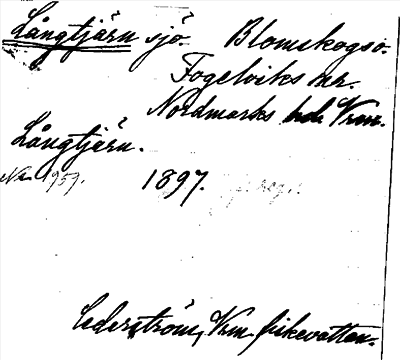 Långtjärn sjö. Blomskogs s.
Fogelviks hr.
Nordmarks hd. Vrm.
Långtjärn.
1959. 1897.
Cederström, Vrm fiskevatten.